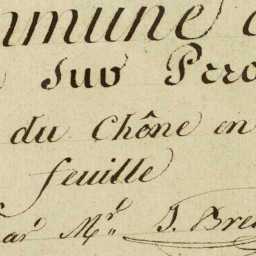 mmune d
Suv Pero
du Chône en
feuille
Par Mr. J. Bre